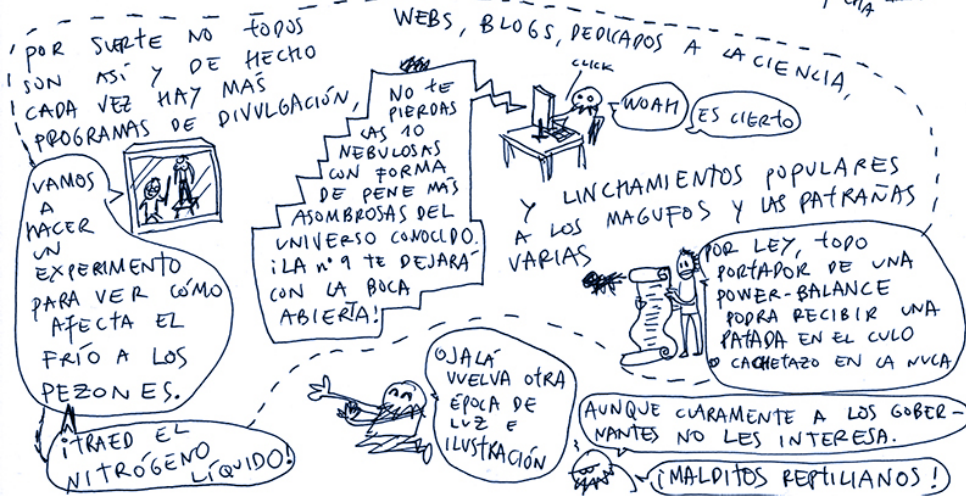 POR SUERTE NO TODOS
SON ASÍ Y DE HECHO
CADA VEZ HAY MÁS
PROGRAMAS DE DIVULGACIÓN,
VAMOS
A
HACER
UN
EXPERIMENTO
PARA VER CÓMO
AFECTA EL
FRÍO A LOS
PEZONES.
¡TRAED EL
NITRÓGENO
LÍQUIDO!
WEBS, BLOGS, DEDICADOS A LA CIENCIA,
NO TE
PIERDAS
LAS 10
NEBULOSAS
CON FORMA
DE PENE MÁS
ASOMBROSAS DEL
UNIVERSO CONOCIDO.
¡LA nº 9 TE DEJARÁ
CON LA BOCA
ABIERTA!
CLICK
WOAH
ES CIERTO
Y LINCHAMIENTOS POPULARES
A LOS MAGUFOS Y LAS PATRAÑAS
VARIAS
POR LEY, TODO
PORTADOR DE UNA
POWER-BALANCE
PODRA RECIBIR UNA
PATADA EN EL CULO
O CACHETAZO EN LA NUCA
OJALÁ
VUELVA OTRA
ÉPOCA DE
LUZ E
ILUSTRACIÓN
AUNQUE CLARAMENTE A LOS GOBER-
NANTES NO LES INTERESA.
¡MALDITOS REPTILIANOS!